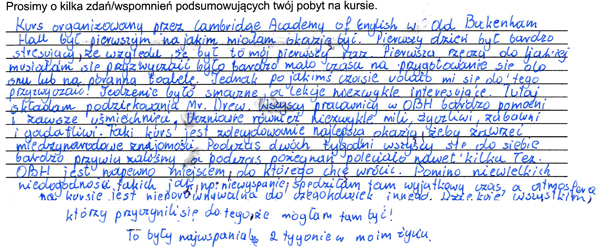 Prosimy o kilka zdań/wspomnień podsumowujących twój pobyt na kursie.
Kurs organizowany przez Cambridge Academy of English w Old Buckenham
Hall był pierwszym na jakim miałam okazję być. Pierwszy dzień był bardzo
stresujący, ze względu, że był to mój pierwszy raz. Pierwszą rzeczą do jakiej
musiałam się przyzwyczaić była bardzo mało czasu na przygotowanie się do
snu lub na poranną toaletę. Jednak po jakimś czasie udało mi się do tego
przyzwyczaić! Jedzenie było smaczne, a lekcje niezwykle interesujące. Tutaj
składam podziękowania Mr. Drew. Wszyscy pracownicy w OBH bardzo pomocni
i zawsze uśmiechnięci. Uczniowie również niezwykle mili, życzliwi, zabawni
i gadatliwi. Taki kurs jest zdecydowanie najlepszą okazją żeby zawrzeć
międzynarodowe znajomości. Podczas dwóch tygodni wszyscy się do siebie
bardzo przywiązaliśmy, a podczas pożegnań poleciało nawet kilka łez.
OBH jest napewno miejscem do którego chcę wrócić. Pomimo niewielkich
niedogodności takich jak np. niewyspanie, spędziłam tam wyjątkowy czas, a atmosfera
na kursie jest nieporównywalna do czegokolwiek innego. Dziękuję wszystkim,
którzy przyczynili się do tego, że mogłam tam być!
To były najwspanialsze 2 tygodnie w moim życiu